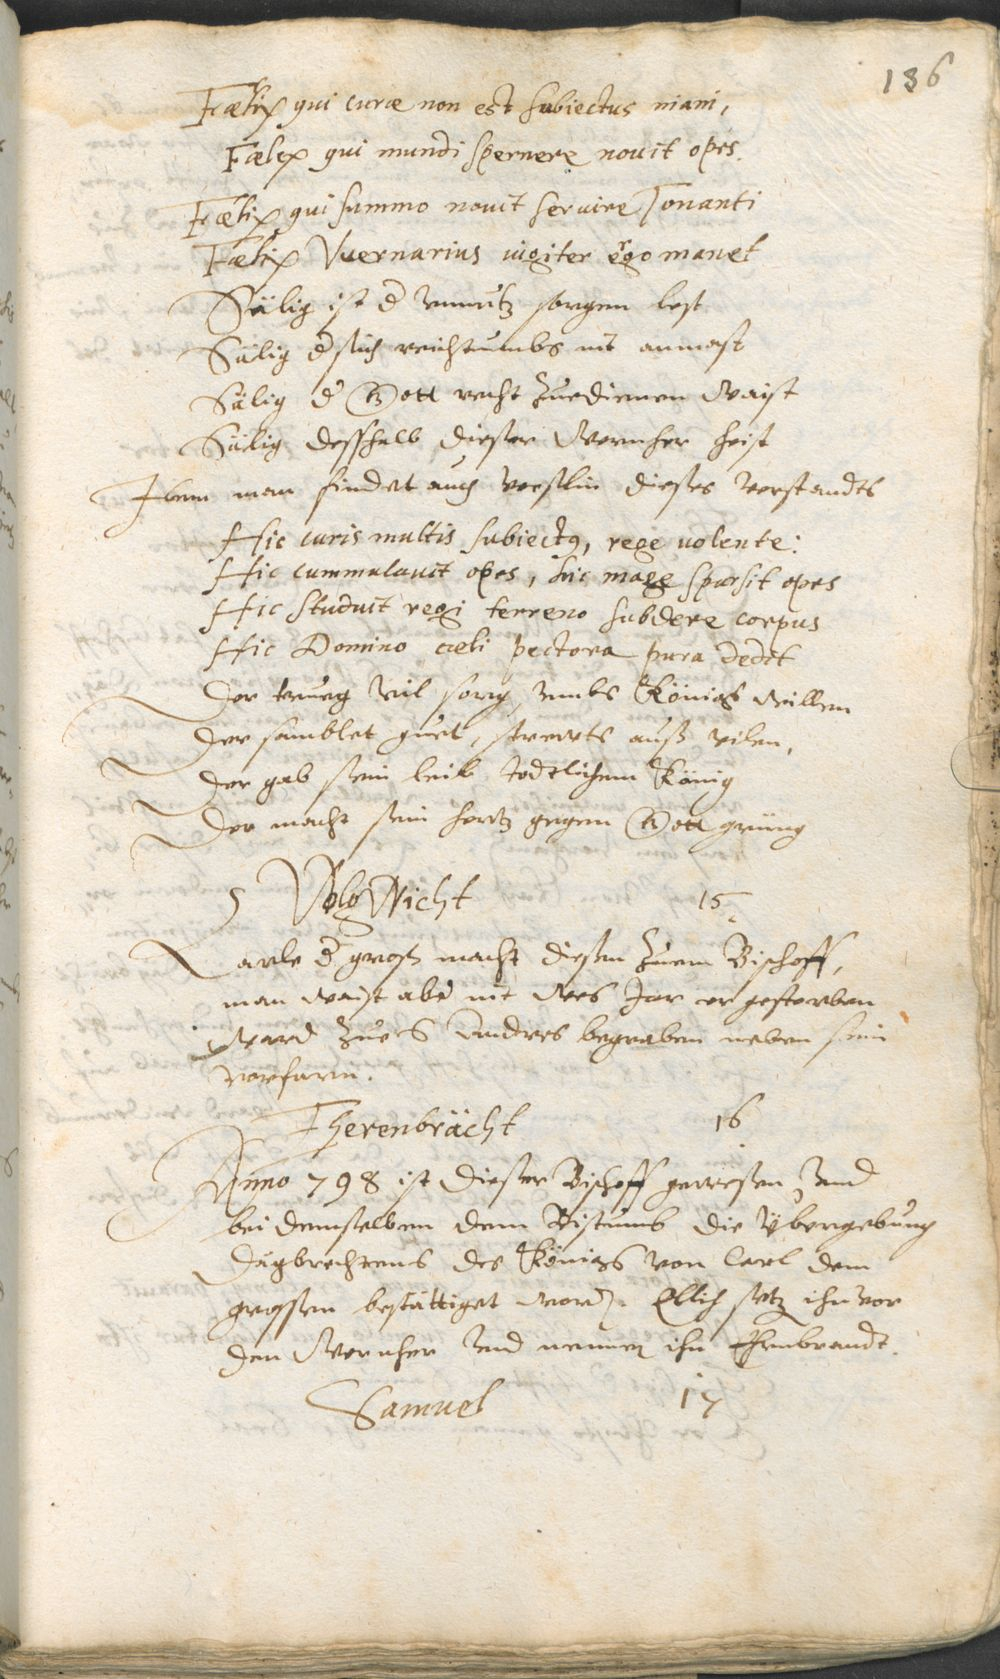 136
Fœlix qui curæ non est subiectus inani,
Fœlix qui mundi spernere nouit opes.
Fœlix qui summo nouit seruire Tonanti
Fœlix Wernarius iugiter ergo manet
Sälig ist d vnnutz sorgen lest
Sälig d sich reichtumbs nit anmast
Sälig d Gott recht zuedienen waist
Sälig desshalb dieser Wernher heist
Item man findet auch verslin dieses verstandts
Hic curis multis subiectus, rege uolente:
Hic cummulauit opes, hic mage sparsit opes
Hic studuit regi terreno subdere corpus
Hic Domino cœli pectora pura dedit
Der trueg vil sorg, vmbs Königs willen
Der samblet guet, strewts auß vilen,
Der gab sein leib todtlichem König
Der macht sein hertz gegen Gott grüng
S Volgwicht 15
Carle d gross macht diesen zuem Bischoff,
man waist abe nit wes Jar er gestorben
ward zue S Andres begraben neben sein
vorfarn.
Eherenbrächt 16
Anno 798 ist dieser Bischoff gewesen, vnd
bei demselben dem Bistumb die Übergebung
Dagbrechtens des Königs von Carl dem
grossen bestättiget word. Etlich setz ihn vor
den Wernher vnd nennen ihn Ehrnbrandt.
Samuel 17